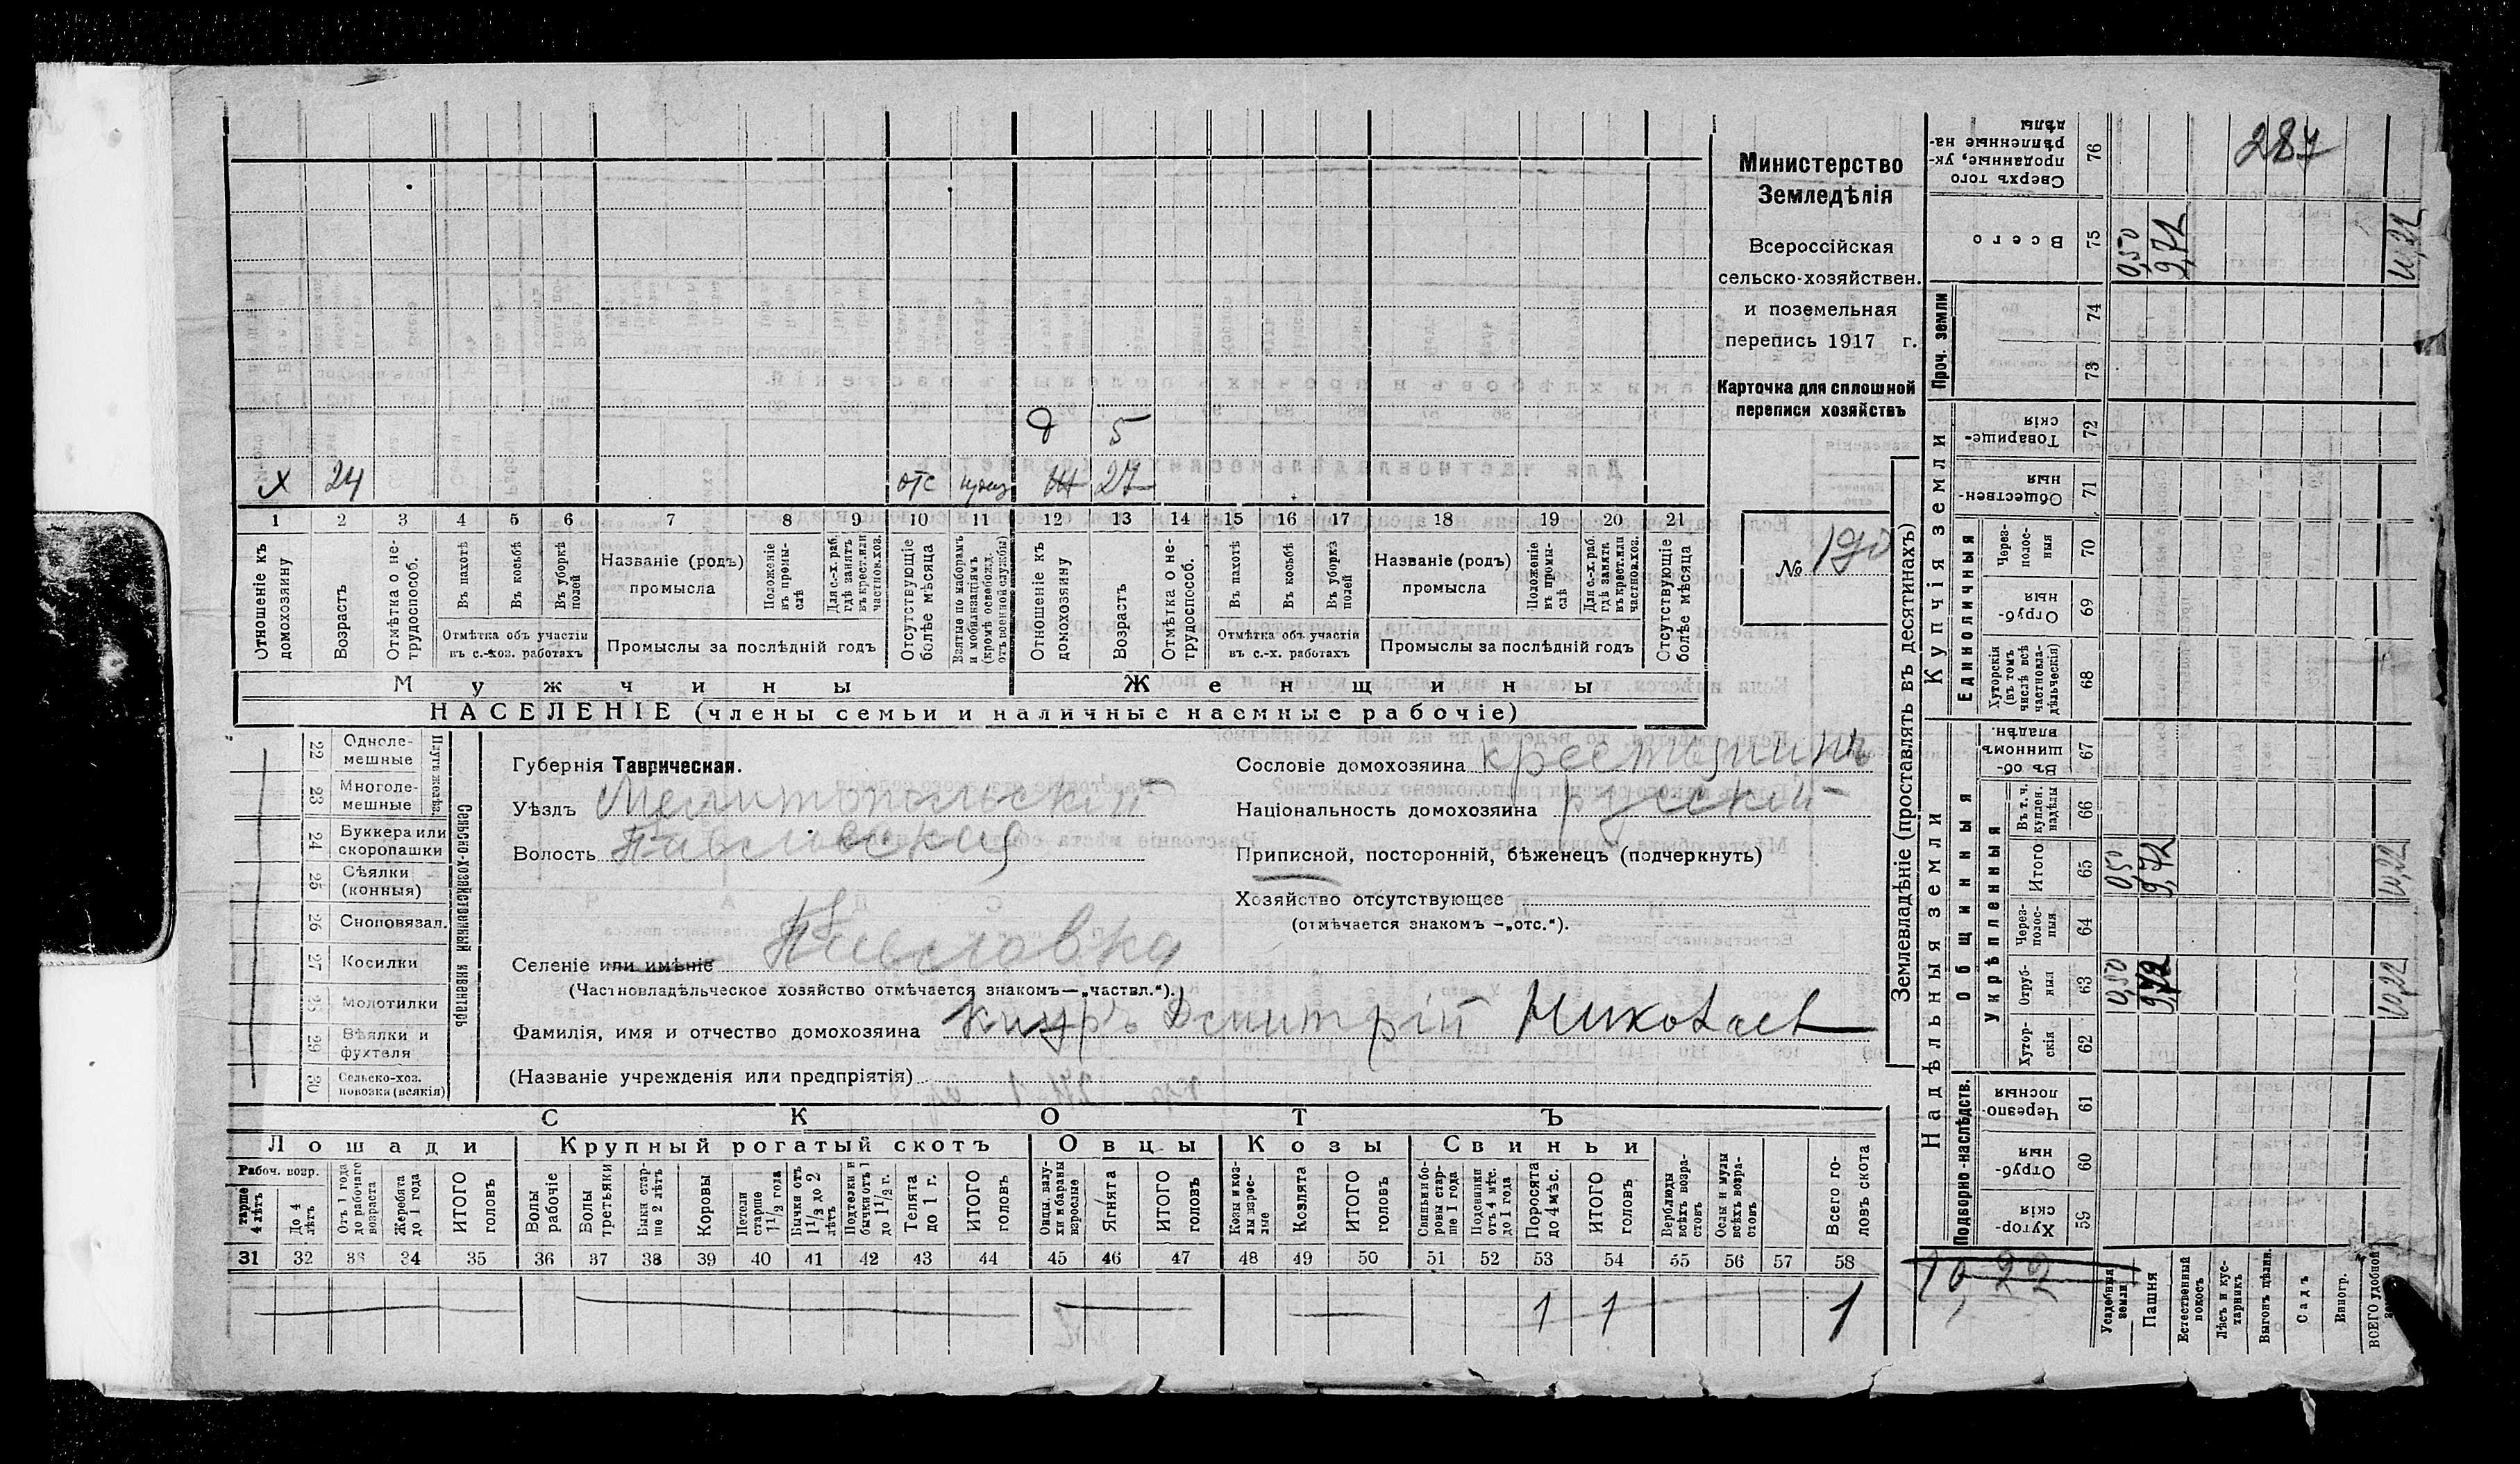 Министерство
Земледѣлія
Всероссійская
сельско-хозяйствен.
и поземельная
перепись 1917 г.
Карточка для сплошной
переписи хозяйствъ
№ 190
287
д 5
х 24 отс Ж 27
1 2 3 4 5 6 7 8 9 10 11 12 13 14 15 16 17 18 19 20 21
Отношеніе къ домохозяину
Возрастъ
Отмѣтка о нетрудоспособ.
Въ пахотѣ
Въ косьбѣ
Въ уборкѣ полей
Отмѣтка объ участіи въ с.-хоз. работахъ
Названіе (родъ) промысла
Положеніе въ промыслѣ
Для с.-х. раб. гдѣ занятъ въ крест. или частнов. хоз.
Промыслы за послѣдній годъ
Отсутствующіе болѣе мѣсяца
Взятые по наборамъ и мобилизаціямъ (кромѣ освобожд. отъ военной службы)
Отношеніе къ домохозяину
Возрастъ
Отмѣтка о нетрудоспособ.
Въ пахотѣ
Въ косьбѣ
Въ уборкѣ полей
Отмѣтка объ участіи въ с.-х. работахъ
Названіе (родъ) промысла
Положеніе въ промыслѣ
Для с.-х. раб. гдѣ занята въ крест. или частнов. хоз.
Промыслы за послѣдній годъ
Отсутствующіе болѣе мѣсяца
Мужчины Женщины
НАСЕЛЕНІЕ (члены семьи и наличные наемные рабочіе)
Сельско-хозяйственный инвентарь
22 Однолемешные
23 Многолемешные
24 Буккера или скоропашки
25 Сѣялки (конныя)
26 Сноповязал.
27 Косилки
28 Молотилки
29 Вѣялки и фухтеля
30 Сельско-хоз. повозки (всякія)
Губернія Таврическая.
Уѣздъ Мелитопольскій
Волость Павловская
Селеніе или имѣніе Павловка
(Частновладѣльческое хозяйство отмѣчается знакомъ—„частвл.“).
Фамилія, имя и отчество домохозяина Кнуръ Дмитрій Николаев
(Названіе учрежденія или предпріятія)
Сословіе домохозяина крестьянинъ
Національность домохозяина русскій
Приписной, посторонній, бѣженецъ (подчеркнуть)
Хозяйство отсутствующее
(отмѣчается знакомъ —„отс.“).
СКОТЪ
Лошади Крупный рогатый скотъ Овцы Козы Свиньи
Рабоч. возр.
тарше 4 лѣтъ
До 4 лѣтъ
Отъ 1 года до рабочаго возраста
Жеребята до 1 года
ИТОГО головъ
Волы рабочіе
Волы третьяки
Быки старше 2 лѣтъ
Коровы
Нетели старше 1 1/2 года
Бычки отъ 1 1/2 до 2 лѣтъ
Подтелки и бычки отъ 1 до 1 1/2 г.
Телята до 1 г.
ИТОГО головъ
Овцы, валухи и бараны взрослые
Ягнята
ИТОГО головъ
Козы и козлы взрослые
Козлята
ИТОГО головъ
Свиньи и боровы старше 1 года
Подсвинки отъ 4 мѣс. до 1 года
Поросята до 4 мѣс.
ИТОГО головъ
Верблюды всѣхъ возрастовъ
Ослы и мулы всѣхъ возрастовъ
Всего головъ скота
31 32 33 34 35 36 37 38 39 40 41 42 43 44 45 46 47 48 49 50 51 52 53 54 55 56 57 58
1 1 1
Землевладѣніе (проставлять въ десятинахъ)
Надѣльныя земли Купчія земли Проч. земли
Подворно-наслѣдств.
Общинныя
Укрѣпленныя
Единоличныя
Хуторскія 59
Отрубныя 60
Черезполосныя 61
Хуторскія 62
Отрубныя 63 0,50 9,72 10,22
Черезполосныя 64
Итого 65 0,50 9,72 10,22
Въ т. ч. куплен. надѣлы 66
Въ общинномъ владѣн. 67
Хуторскія (въ томъ числѣ всѣ частновладѣльческія) 68
Отрубныя 69
Черезполосныя 70
Общественныя 71
Товарищескія 72
73
74
Всего 75 0,50 9,72 10,22
Сверхъ того проданные, укрѣпленные надѣлы 76
10,22
Усадебныя земли
Пашня
Естественный покосъ
Лѣсъ и кустарникъ
Выгонъ цѣлин.
Садъ
Виногр.
ВСЕГО удобной